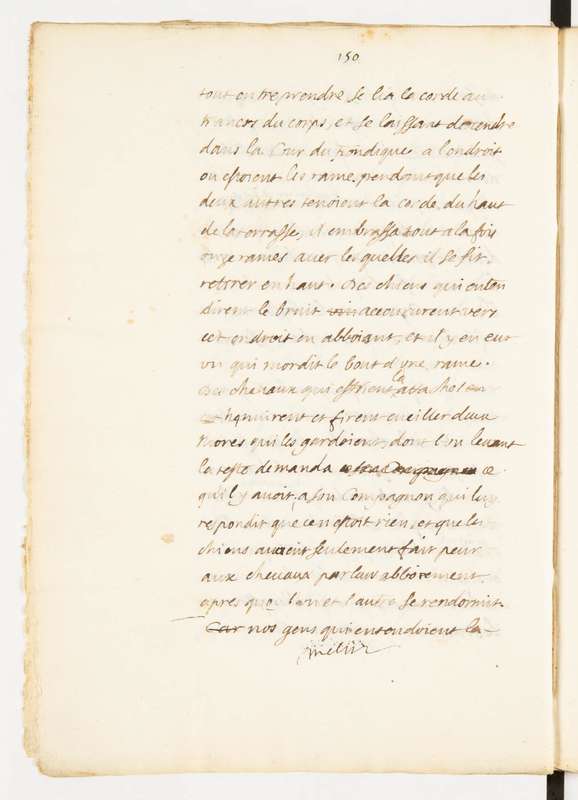 150
tout entreprendre se lia la corde au
travers du corps, et se laissant descendre
dans la Cour du fondique a l'endroit
ou estoient les rame, pendant que les
deux autres tenoient la corde du haut
de la terrasse, il embrassa tout a la fois
onze rames avec lesquelles il se fit
retirer en haut. Des chiens qui enten
dirent le bruit accoururent vers
cet endroit en abboiant, et il y en eut
un qui mordit le bout d'une rame.
Des chevaux qui estoient la atta
hennirent et firent eveiller deux
Mores qui les gardoient, dont l'un levant
la teste demanda ce
qu'il y avoit, a son Compagnon qui luy
respondit que ce n'estoit rien, et que les
chiens avoient seulement fait peur
aux chevaux par leur abboiement,
apres quoi l'un et l'autre se rendormit
Car nos gens qui entendoient la